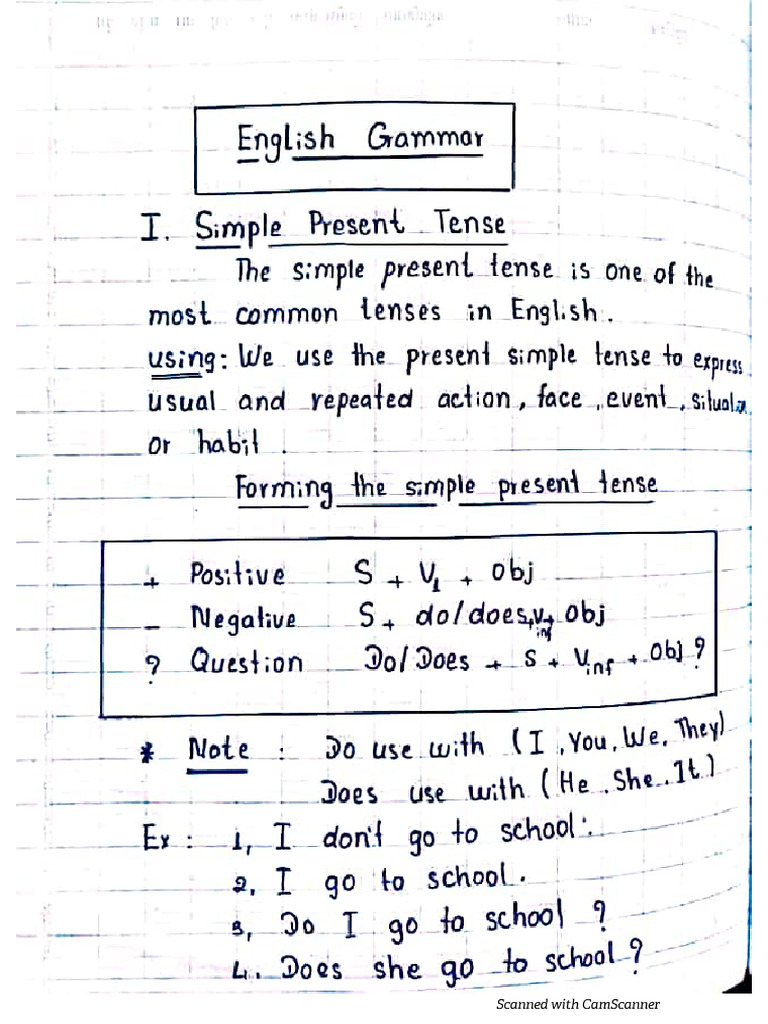 English Grammar
I. Simple Present Tense
The simple present tense is one of the
most common tenses in English.
using: We use the present simple tense to express
usual and repeated action, face, event, situat
or habit.
Forming the simple present tense
+ Positive S + V1 + obj
- Negative S + do/does + V inf + obj
? Question Do/Does + S + Vinf + Obj ?
* Note : Do use with (I, You, We, They)
Does use with (He, She, It)
Ex : 1, I don't go to school.
2. I go to school.
3, Do I go to school ?
4. Does she go to school ?
Scanned with CamScanner